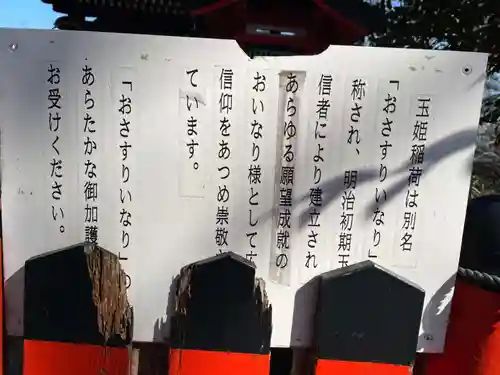 玉姫稲荷は別名
「おさすりいなり」
称され、明治初期玉
信者により建立され
あらゆる願望成就の
おいなり様として
信仰をあつめ崇敬
ています。
「おさすりいなり」の
あらたかな御加護
お受けください。